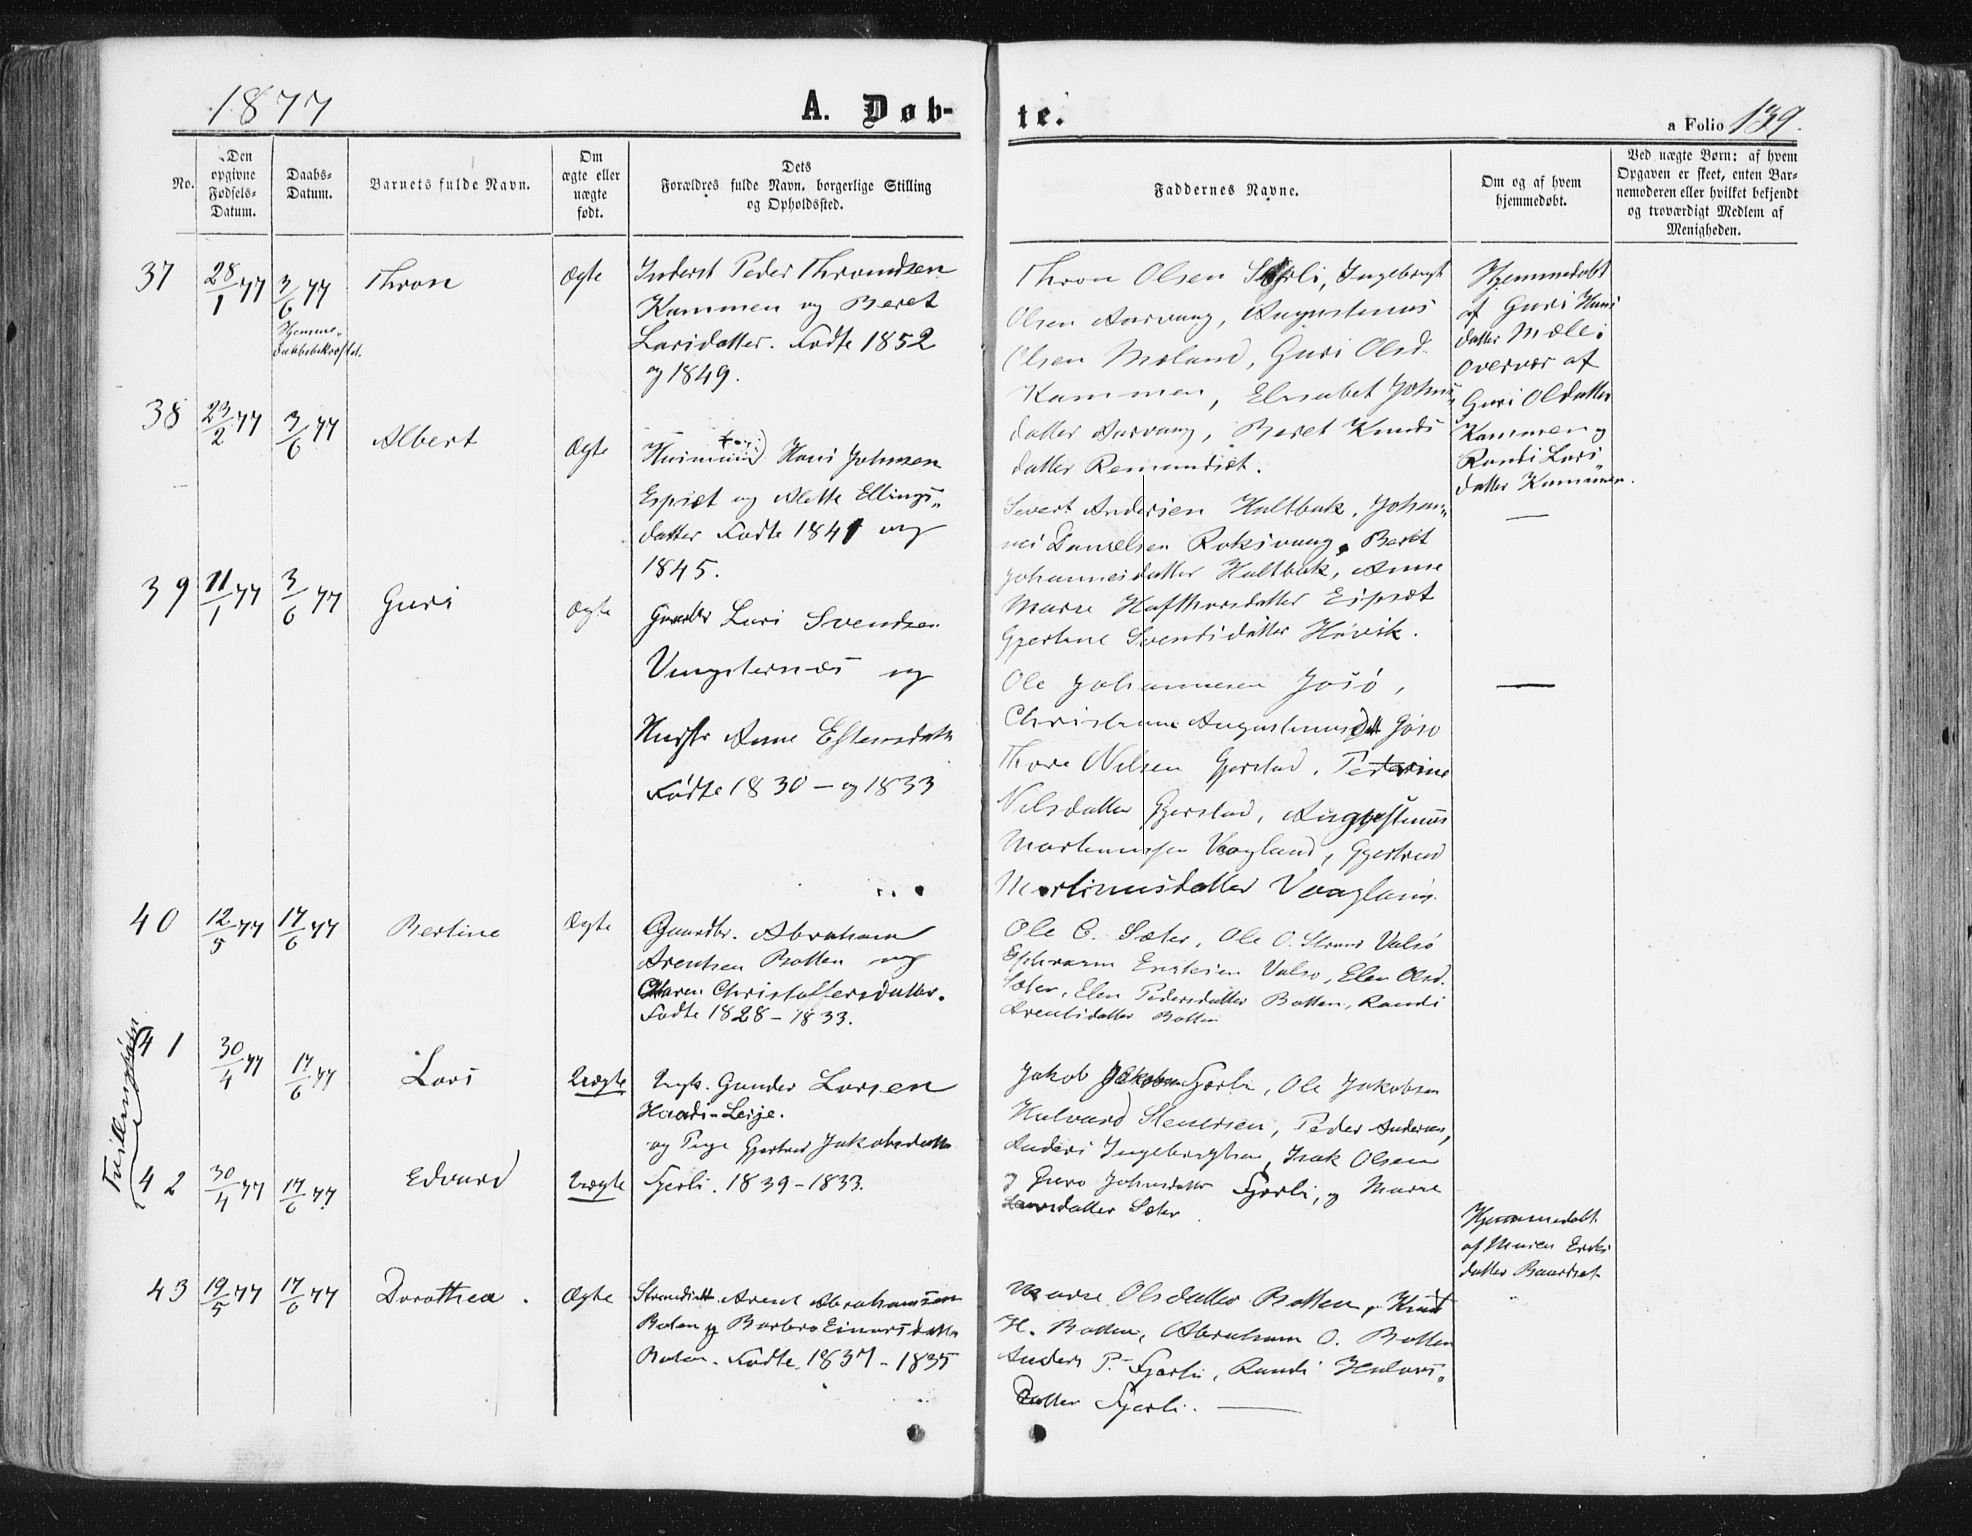 1877
A. Døb-
te.
a Folio 139.
No.
Den opgivne Fødsels-Datum.
Daabs-Datum.
Barnets fulde Navn.
Om ægte eller uægte født.
Dets Forældres fulde Navn, borgerlige Stilling og Opholdssted.
Faddernes Navne.
Om og af hvem hjemmedøbt.
Ved uægte Børn: af hvem Opgaven er skeet, enten Barnemoderen eller hvilket bekjendt og troværdigt Medlem af Menigheden.
37 28/1 77 3/6 77 Thron Ægte
Hjemme-
daabbekræftet.
Inderst Peder Throndsen
Kammen og Beret
Larsdatter. Fødte 1852
og 1849.
Thron Olsen Ingebrigt
Olsen Aarvaag, Augustinus
Olsen Moland, Guri Olsd.
Kammen, Elisabet Johns
datter Aarvaag, Beret Knuds
datter Remundset.
Hjemmedøbt
af Guri Hans
datter Mæle i
Overvær af
Guri Olsdatter
Kammen og
Randi Lars
datter Kammen.
38 23/2 77 3/6 77 Albert Ægte
Husmand Hans Johnsen
Espset og Alette Ellings
datter Fødte 1841 og
1845.
Sivert Andersen Holtbak, Johan
nes Danielsen Roksvaag, Beret
Johannesdatter Holtbak, Anne
Marie Hafthorsdatter Espset
Gjertine Svendsdatter Høvik.
—
39 11/1 77 3/6 77 Guri Ægte
Gaardbr Lars Svendsen
Vingsternæs og
Hustr Anne Estensdatt
Fødte 1830 — og 1833
Ole Johannesen Jøsø,
Christiane Augustinusdatt Jøsø
Thore Nilsen Gjerstad, Pederine
Nilsdatter Gjerstad, Augustinus
Martinussen Vaagland, Gjertrud
Martinusdatter Vaagland.
—
40 12/5 77 17/6 77 Bertine Ægte
Gaardbr. Abraham
Arentsen Botten og
Maren Christoffersdatter.
Fødte 1828 - 1833.
Ole C. Sæter, Ole O. Strand Valsø
Ephraim Eriksen Valsø, Elen Olsd.
Sæter, Elen Pedersdatter Botten, Randi
Arentsdatter Botten
Tvillingbørn
41 30/4 77 17/6 77 Lars Uægte
Ungk. Gunder Larsen
og Pige Gjertrud Jakobsdatter
Fjerli. 1839 - 1833.
Jakob Jakobsen Fjerli, Ole Jakobsen
Halvard Stenersen, Peder Andersen,
Anders Ingebrigtsen, Isak Olsen
og Guro Johnsdatter Fjerli, og Marie
Larsdatter Sæter
42 30/4 77 17/6 77 Edvard Uægte
43 19/5 77 17/6 77 Dorothea. Ægte
Strandsidd. Arent Abrahamsen
Boten og Barbro Einarsdatter
Boten. Fødte 1837 - 1835
Marie Olsdatter Botten, Knut
H. Botten, Abraham O. Botten
Anders P. Fjerli, Randi Halvors
datter Fjerli. —
Hjemmedøbt
af Maren Eriks
datter Baardset